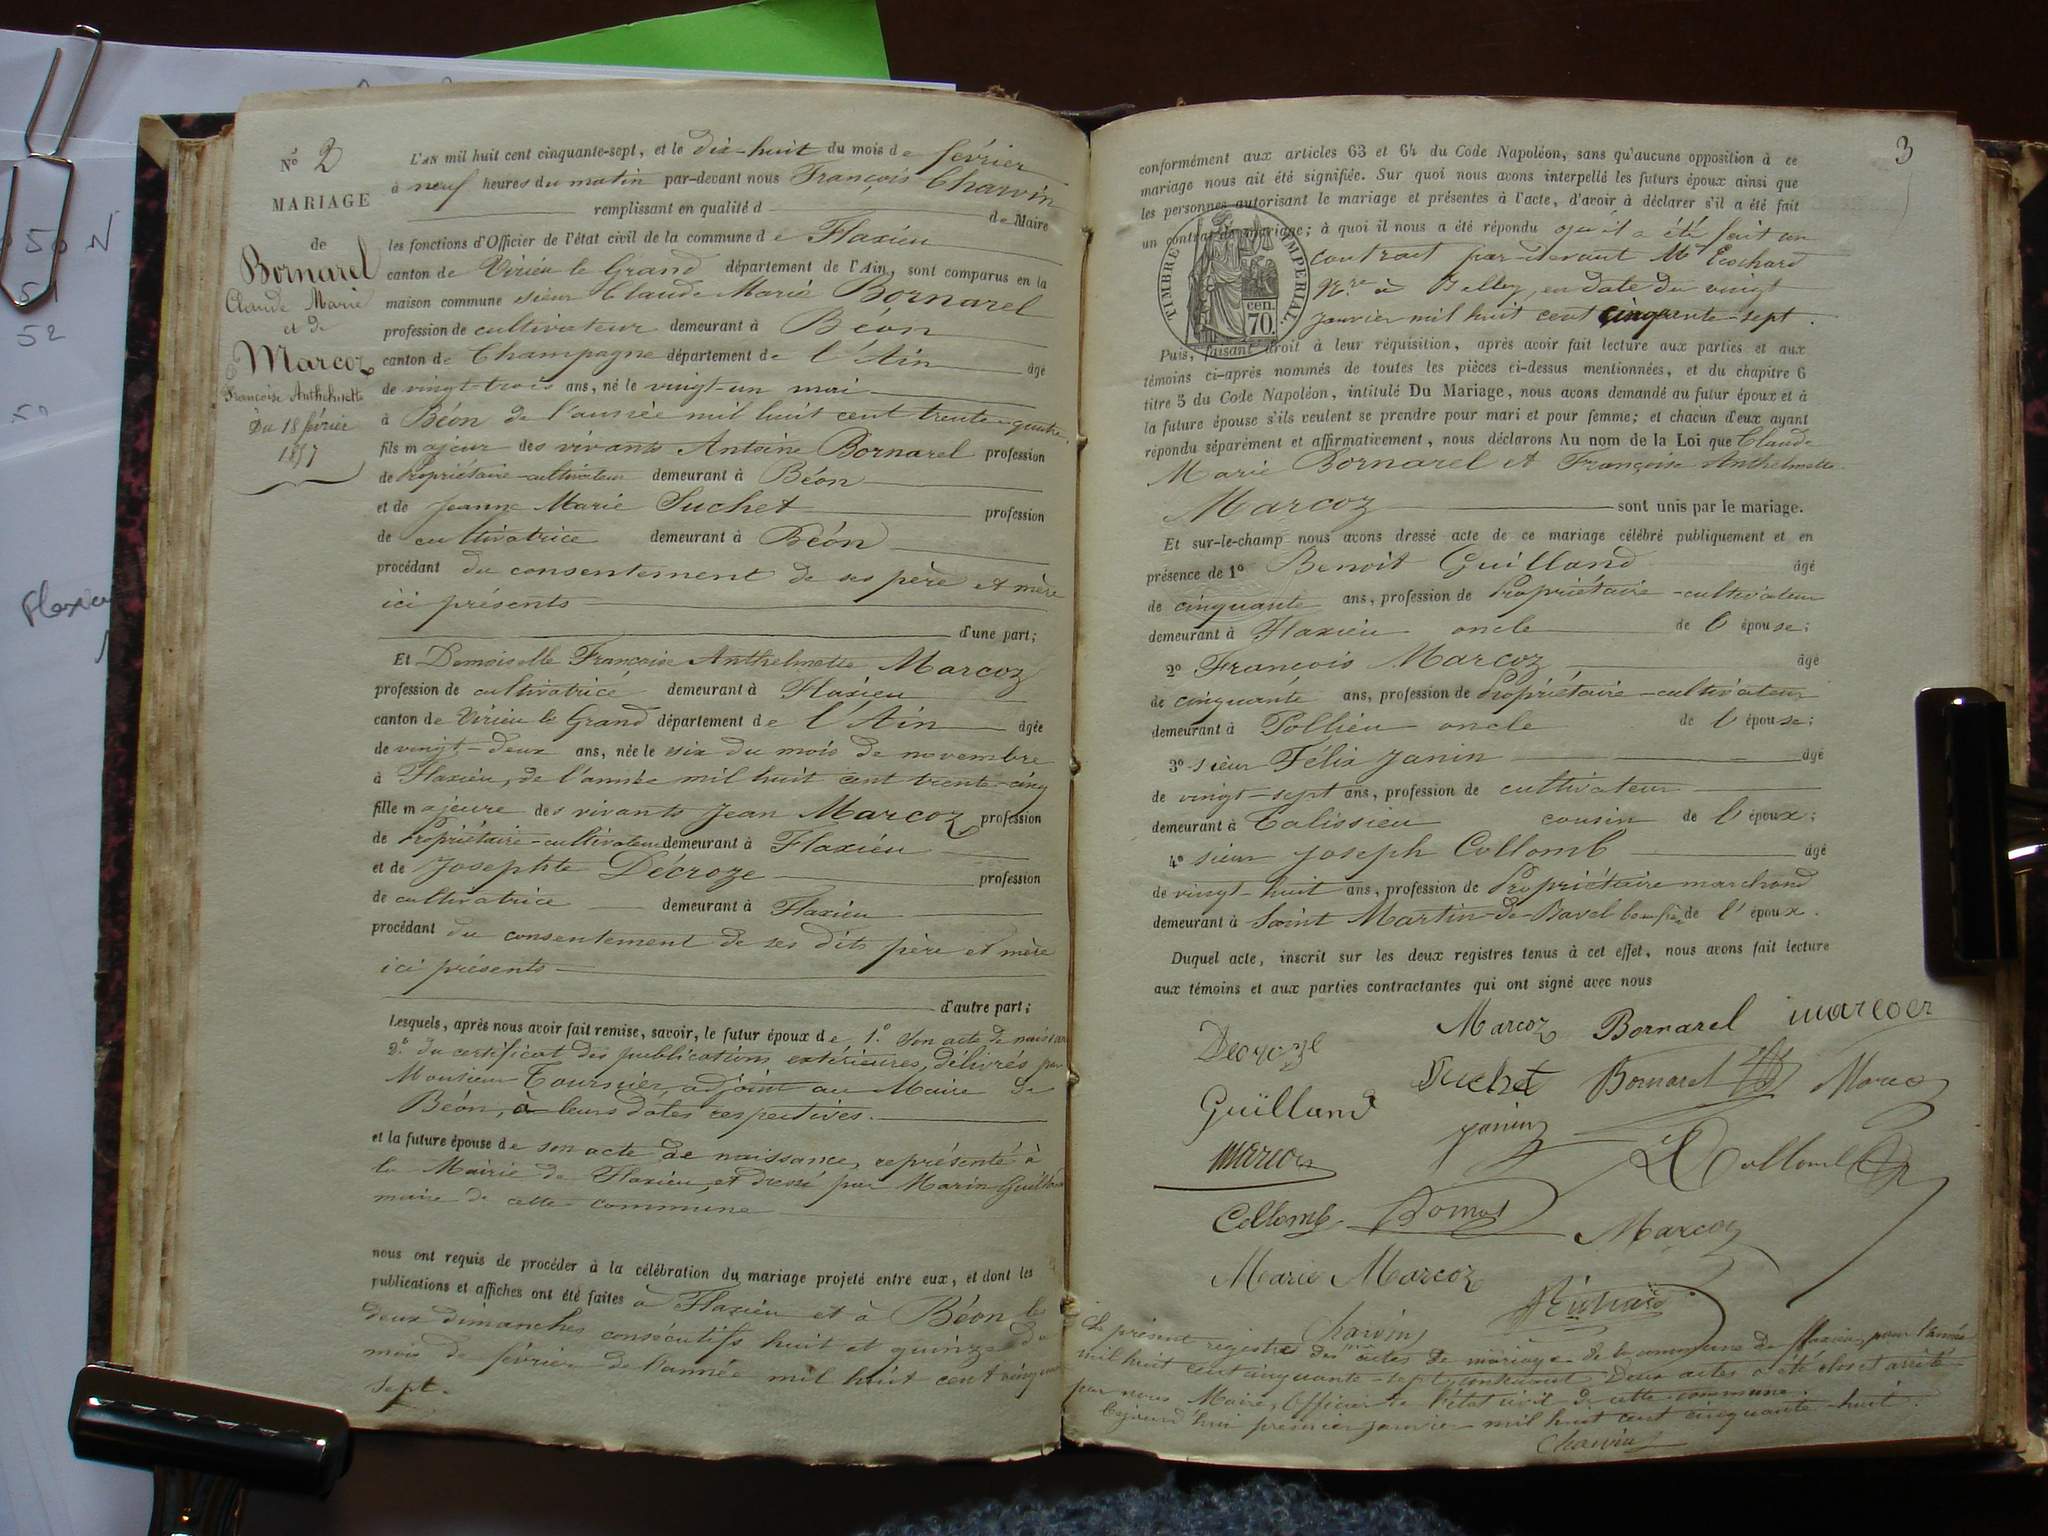 50 N
51
52
Flaxieu
Nº 2
MARIAGE
de
Bornarel
Claude Marie
et de
Marcoz
Françoise Anthelmette
Du 18 février
1857
L'AN mil huit cent cinquante-sept, et le dix-huit du mois de février
à neuf heures du matin par-devant nous François Charvin
remplissant en qualité d de Maire
les fonctions d'Officier de l'état civil de la commune de Flaxieu
canton de Virieu le Grand département de l'Ain, sont comparus en la
maison commune sieur Claude Marie Bornarel
profession de cultivateur demeurant à Béon
canton de Champagne département de l'Ain âgé
de vingt-trois ans, né le vingt-un mai
à Béon de l'année mil huit cent trente-quatre,
fils majeur des vivants Antoine Bornarel profession
de Propriétaire-cultivateur demeurant à Béon
et de Jeanne Marie Suchet profession
de cultivatrice demeurant à Béon
procédant du consentement de ses père et mère
ici présents
d'une part;
Et Demoiselle Françoise Anthelmette Marcoz
profession de cultivatrice demeurant à Flaxieu
canton de Virieu le Grand département de l'Ain âgée
de vingt-deux ans, née le six du mois de novembre
à Flaxieu, de l'année mil huit cent trente-cinq
fille majeure des vivants Jean Marcoz profession
de Propriétaire-cultivateur demeurant à Flaxieu
et de Josephte Décroze profession
de cultivatrice demeurant à Flaxieu
procédant du consentement de ses dits père et mère
ici présents
d'autre part;
Lesquels, après nous avoir fait remise, savoir, le futur époux de 1.º Son acte de naissan
2.º du certificat des publications extérieures, délivrés par
Monsieur Tournier, adjoint au Maire de
Béon, à leurs dates respectives.
et la future épouse de son acte de naissance, représenté à
la Mairie de Flaxieu, et dressé par Marin Guilland
maire de cette commune
nous ont requis de procéder à la célébration du mariage projeté entre eux, et dont les
publications et affiches ont été faites à Flaxieu et à Béon les
deux dimanches consécutifs huit et quinze du
mois de février de l'année mil huit cent cinquante
sept.
3
conformément aux articles 63 et 64 du Code Napoléon, sans qu'aucune opposition à ce
mariage nous ait été signifiée. Sur quoi nous avons interpellé les futurs époux ainsi que
les personnes autorisant le mariage et présentes à l'acte, d'avoir à déclarer s'il a été fait
un contrat de mariage; à quoi il nous a été répondu qu'il a été fait un
contrat par-devant Mt Cochard
Nre à Belley, en date du vingt
janvier mil huit cent cinquante-sept.
TIMBRE IMPERIAL
70 cen.
Puis, faisant droit à leur réquisition, après avoir fait lecture aux parties et aux
témoins ci-après nommés de toutes les pièces ci-dessus mentionnées, et du chapitre 6
titre 5 du Code Napoléon, intitulé Du Mariage, nous avons demandé au futur époux et à
la future épouse s'ils veulent se prendre pour mari et pour femme; et chacun d'eux ayant
répondu séparément et affirmativement, nous déclarons Au nom de la Loi que Claude
Marie Bornarel et Françoise Anthelmette
Marcoz sont unis par le mariage.
Et sur-le-champ nous avons dressé acte de ce mariage célébré publiquement et en
présence de 1º Benoit Guilland âgé
de cinquante ans, profession de Propriétaire-cultivateur
demeurant à Flaxieu oncle de l'épouse;
2º François Marcoz âgé
de cinquante ans, profession de Propriétaire-cultivateur
demeurant à Pollieu oncle de l'épouse;
3º sieur Félix Janin âgé
de vingt-sept ans, profession de cultivateur
demeurant à Talissieu cousin de l'époux;
4º sieur Joseph Collomb âgé
de vingt-huit ans, profession de Propriétaire marchand
demeurant à Saint Martin-de-Bavel beau frère de l'époux.
Duquel acte, inscrit sur les deux registres tenus à cet effet, nous avons fait lecture
aux témoins et aux parties contractantes qui ont signé avec nous
Marcoz Bornarel marcoz
Decroze
Suchet Bornarel Marcoz
Guilland
Janin
marcoz
Collomb
Collomb
Marcoz
Marie Marcoz
Charvin
Le présent registre des actes de mariage de la commune de Flaxieu, pour l'année
mil huit cent cinquante-sept, contenant Deux actes a été clos et arrêté
par nous Maire, Officier de l'état civil de cette commune.
Cejourd'hui premier janvier mil huit cent cinquante-huit.
Charvin